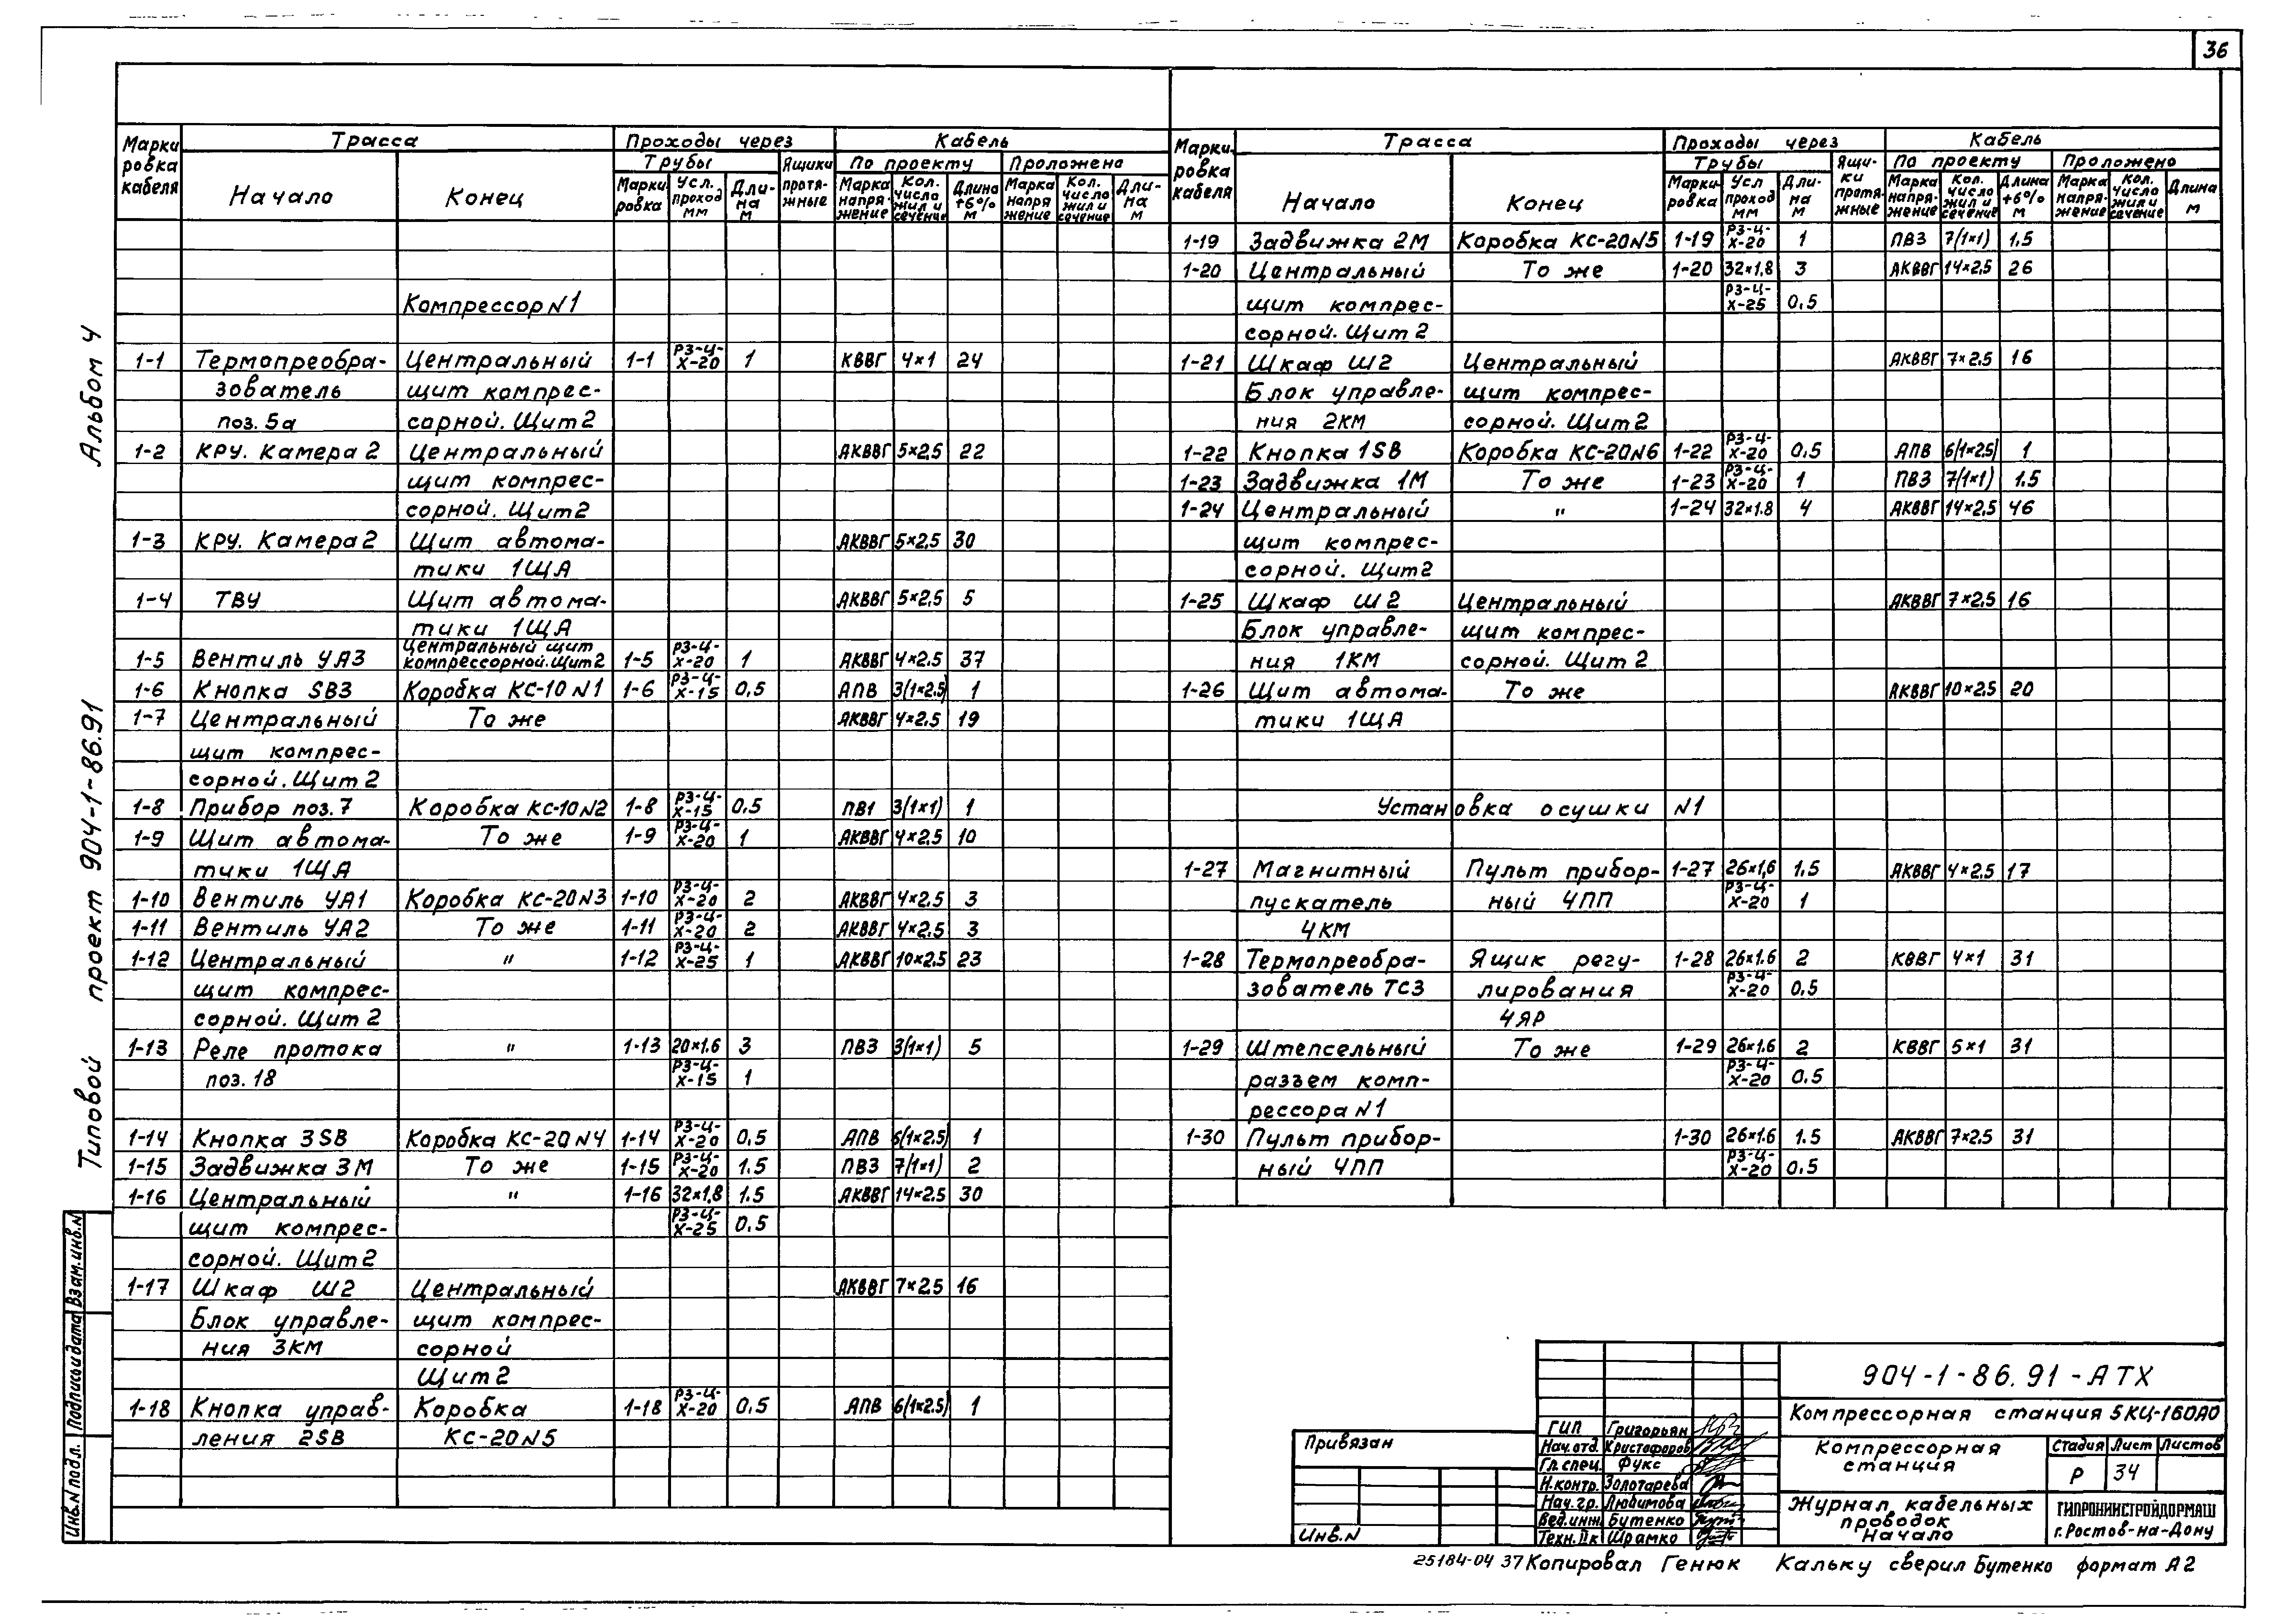 36
Альбом 4
Типовой проект 904-1-86.91
Взам.инв.N
Подпись и дата
Инв.N подл.
Марки ровка кабеля | Трасса | Проходы через | Кабель
Трубы | Ящики протя- жные | По проекту | Проложено
Начало | Конец | Марки ровка | Усл. проход мм | Дли- на м | Марка напря- жение | Кол. число жил и сечение | Длина +6% м | Марка напря жение | Кол. число жил и сечение | Дли- на м
Компрессор N1
1-1 Термопреобра- Центральный 1-1 РЗ-Ц-Х-20 1 КВВГ 4×1 24
зователь щит компрес-
поз. 5а сорной. Щит 2
1-2 КРУ. Камера 2 Центральный АКВВГ 5×2,5 22
щит компрес-
сорной. Щит 2
1-3 КРУ. Камера 2 Щит автома- АКВВГ 5×2,5 30
тики 1ЩА
1-4 ТВУ Щит автома- АКВВГ 5×2,5 5
тики 1ЩА
Центральный щит
1-5 Вентиль УА3 компрессорной. Щит 2 1-5 РЗ-Ц-Х-20 1 АКВВГ 4×2.5 37
1-6 Кнопка SB3 Коробка КС-10 N1 1-6 РЗ-Ц-Х-15 0,5 АПВ 3(1×2.5) 1
1-7 Центральный То же АКВВГ 4×2.5 19
щит компрес-
сорной. Щит 2
1-8 Прибор поз. 7 Коробка КС-10 N2 1-8 РЗ-Ц-Х-15 0.5 ПВ1 3(1×1) 1
1-9 Щит автома- То же 1-9 РЗ-Ц-Х-20 1 АКВВГ 4×2.5 10
тики 1ЩА
1-10 Вентиль УА1 Коробка КС-20 N3 1-10 РЗ-Ц-Х-20 2 АКВВГ 4×2.5 3
1-11 Вентиль УА2 То же 1-11 РЗ-Ц-Х-20 2 АКВВГ 4×2.5 3
1-12 Центральный " 1-12 РЗ-Ц-Х-25 1 АКВВГ 10×2.5 23
щит компрес-
сорной. Щит 2
1-13 Реле протока " 1-13 20×1.6 3 ПВ3 3(1×1) 5
поз. 18 РЗ-Ц-Х-15 1
1-14 Кнопка 3SB Коробка КС-20 N4 1-14 РЗ-Ц-Х-20 0,5 АПВ 6(1×2.5) 1
1-15 Задвижка 3М То же 1-15 РЗ-Ц-Х-20 1.5 ПВ3 7(1×1) 2
1-16 Центральный " 1-16 32×1,8 1.5 АКВВГ 14×2.5 30
щит компрес- РЗ-Ц-Х-25 0.5
сорной. Щит 2
1-17 Шкаф Ш2 Центральный АКВВГ 7×2.5 16
Блок управле- щит компрес-
ния 3КМ сорной
Щит 2
1-18 Кнопка управ- Коробка 1-18 РЗ-Ц-Х-20 0,5 АПВ 6(1×2.5) 1
ления 2SB КС-20 N5
Марки- ровка кабеля | Трасса | Проходы через | Кабель
Трубы | Ящи- ки протя- жные | По проекту | Проложено
Начало | Конец | Марки- ровка | Усл проход мм | Дли- на м | Марка напря- жение | Кол. число жил и сечение | Длина +6% м | Марка напря- жение | Кол. число жил и сечение | Длина м
1-19 Задвижка 2М Коробка КС-20 N5 1-19 РЗ-Ц-Х-20 1 ПВ3 7(1×1) 1,5
1-20 Центральный То же 1-20 32×1,8 3 АКВВГ 14×2,5 26
щит компрес- РЗ-Ц-Х-25 0.5
сорной. Щит 2
1-21 Шкаф Ш2 Центральный АКВВГ 7×2.5 16
Блок управле- щит компрес-
ния 2КМ сорной. Щит 2
1-22 Кнопка 1SB Коробка КС-20 N6 1-22 РЗ-Ц-Х-20 0,5 АПВ 6(1×2.5) 1
1-23 Задвижка 1М То же 1-23 РЗ-Ц-Х-20 1 ПВ3 7(1×1) 1.5
1-24 Центральный " 1-24 32×1.8 4 АКВВГ 14×2,5 46
щит компрес-
сорной. Щит 2
1-25 Шкаф Ш2 Центральный АКВВГ 7×2.5 16
Блок управле- щит компрес-
ния 1КМ сорной. Щит 2
1-26 Щит автома- То же АКВВГ 10×2.5 20
тики 1ЩА
Установка осушки N1
1-27 Магнитный Пульт прибор- 1-27 26×1,6 1.5 АКВВГ 4×2.5 17
пускатель ный 4ПП РЗ-Ц-Х-20 1
4КМ
1-28 Термопреобра- Ящик регу- 1-28 26×1.6 2 КВВГ 4×1 31
зователь ТС3 лирования РЗ-Ц-Х-20 0.5
4ЯР
1-29 Штепсельный То же 1-29 26×1.6 2 КВВГ 5×1 31
разъем комп- РЗ-Ц-Х-20 0.5
рессора N1
1-30 Пульт прибор- 1-30 26×1.6 1.5 АКВВГ 7×2.5 31
ный 4ПП РЗ-Ц-Х-20 0.5
Привязан
Инв.N
ГИП Григорьян
Нач.отд. Кристофоров
Гл.спец. Фукс
Н.контр. Золотарева
Нач.гр. Любимова
Вед.инж. Бутенко
Техн. IIк Шрамко
904-1-86.91-АТХ
Компрессорная станция 5КЦ-160А0
Компрессорная станция
Стадия Лист Листов
Р 34
Журнал кабельных проводок Начало
ГИПРОНИИСТРОЙДОРМАШ
г.Ростов-на-Дону
25184-04 37 Копировал Генюк Кальку сверил Бутенко формат А2